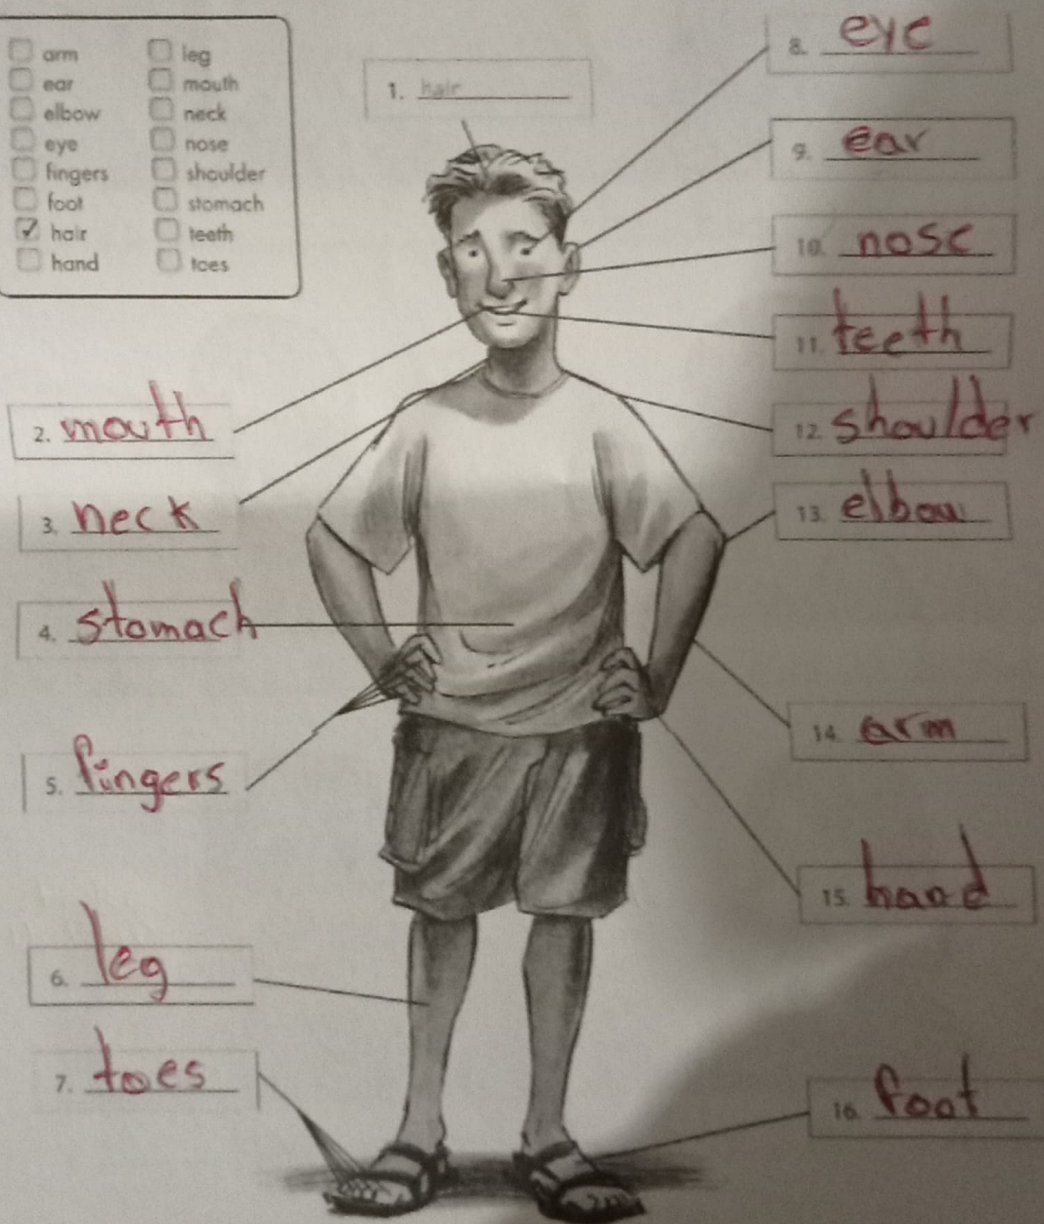 arm
ear
elbow
eye
fingers
foot
✓ hair
hand
leg
mouth
neck
nose
shoulder
stomach
teeth
toes
1. hair
2. mouth
3. neck
4. stomach
5. fingers
6. leg
7. toes
8. eye
9. ear
10. nose
11. teeth
12. shoulder
13. elbow
14. arm
15. hand
16. foot